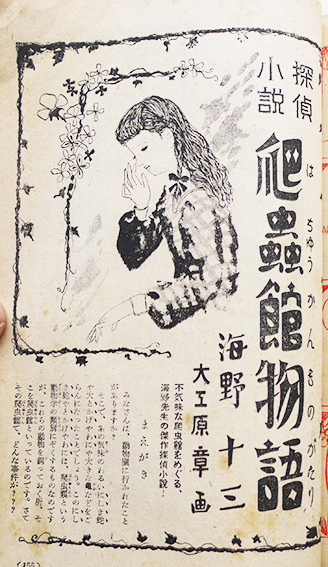 探偵
小説
爬蟲館物語
はちゅうかんものがたり
海野十三
大工原章画
不気味な爬虫館をめぐる、
海野先生の傑作探偵小説!
まえがき
みなさんは、動物園に行かれたこと
がありますか?
そこで、あの気味のわるいにしき蛇
や大とかげやわにや大きい亀などをご
らんになったことでしょう。このにし
き蛇やとかげやわには、爬虫類という
動物学の類別にぞくするものなのです
が、これらの動物を飼っておく所、そ
こを爬虫館といっているのです。さて
その爬虫館で、どんな事件が???
(155)